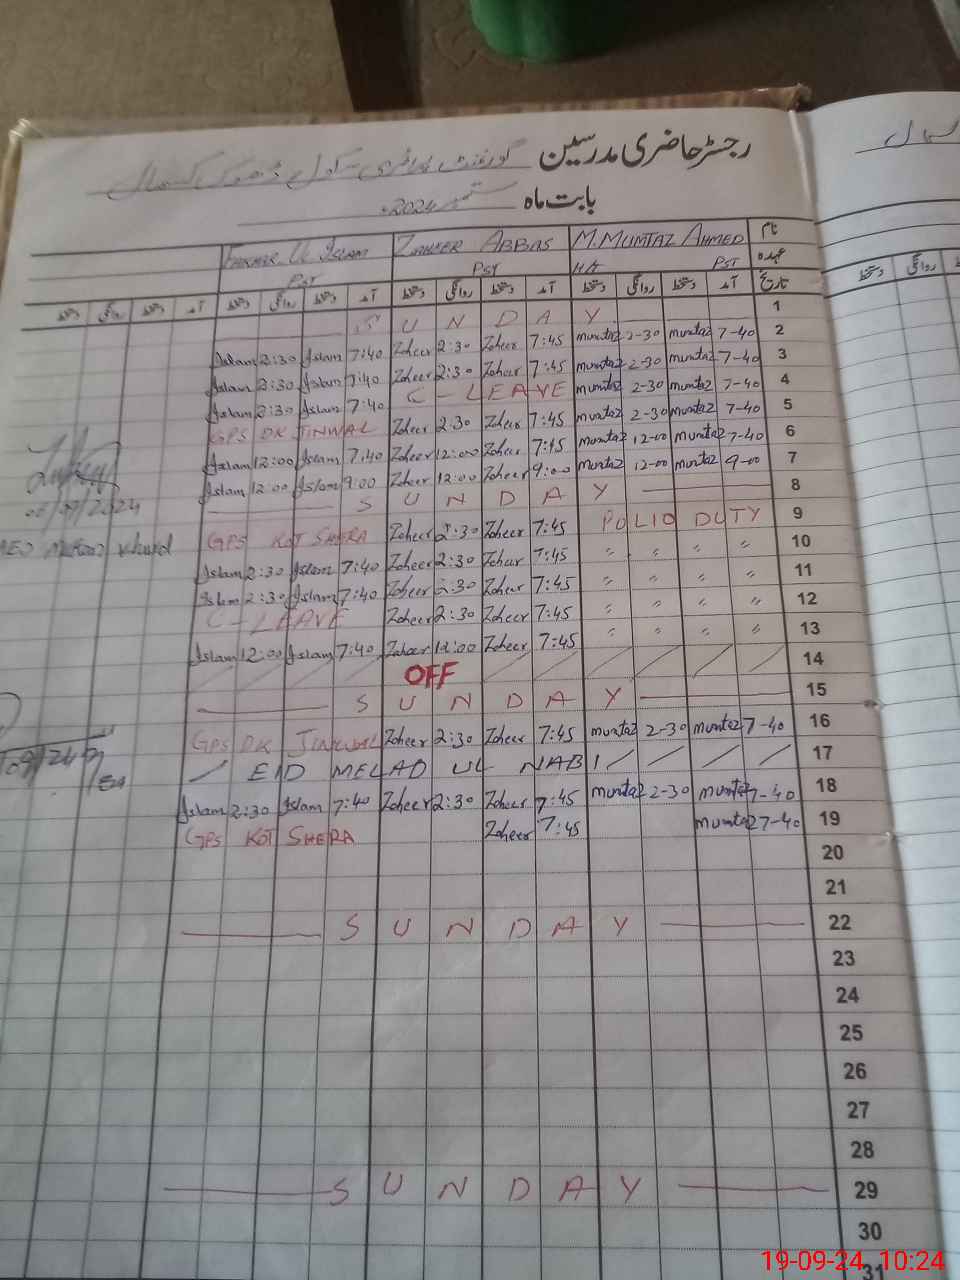 رجسٹر حاضری مدرسین گورنمنٹ پرائمری سکول ڈھوک
بابت ماہ ستمبر 2024ء
FAKHAR UL ISLAM ZAHEER ABBAS M. MUMTAZ AHMED نام
PST PST HA PST عہدہ
دستخط روانگی دستخط آمد دستخط روانگی دستخط آمد دستخط روانگی دستخط آمد دستخط روانگی دستخط آمد تاریخ
S U N D A Y 1
Islam 2:30 Islam 7:40 Zoheer 2:30 Zoheer 7:45 mumtaz 2-30 mumtaz 7-40 2
Islam 2:30 Islam 7:40 Zoheer 2:30 Zoheer 7:45 mumtaz 2-30 mumtaz 7-40 3
Islam 2:30 Islam 7:40 C - LEAVE mumtaz 2-30 mumtaz 7-40 4
GPS DK JINWAL Zoheer 2:30 Zoheer 7:45 mumtaz 2-30 mumtaz 7-40 5
Islam 12:00 Islam 7:40 Zoheer 12:00 Zoheer 7:45 mumtaz 12-00 mumtaz 7-40 6
Islam 12:00 Islam 9:00 Zoheer 12:00 Zoheer 9:00 mumtaz 12-00 mumtaz 9-00 7
S U N D A Y 8
GPS KOT SHERA Zoheer 2:30 Zoheer 7:45 POLIO DUTY 9
Islam 2:30 Islam 7:40 Zoheer 2:30 Zoheer 7:45 " " " " 10
Islam 2:30 Islam 7:40 Zoheer 2:30 Zoheer 7:45 " " " " 11
C - LEAVE Zoheer 2:30 Zoheer 7:45 " " " " 12
Islam 12:00 Islam 7:40 Zoheer 12:00 Zoheer 7:45 " " " " 13
OFF 14
S U N D A Y 15
GPS DK JINWAL Zoheer 2:30 Zoheer 7:45 mumtaz 2-30 mumtaz 7-40 16
EID MELAD UL NABI 17
Islam 2:30 Islam 7:40 Zoheer 2:30 Zoheer 7:45 mumtaz 2-30 mumtaz 7-40 18
GPS KOT SHERA Zoheer 7:45 mumtaz 7-40 19
20
21
S U N D A Y 22
23
24
25
26
27
28
S U N D A Y 29
30
31
/09/2024
AEO
دستخط روانگی
19-09-24, 10:24